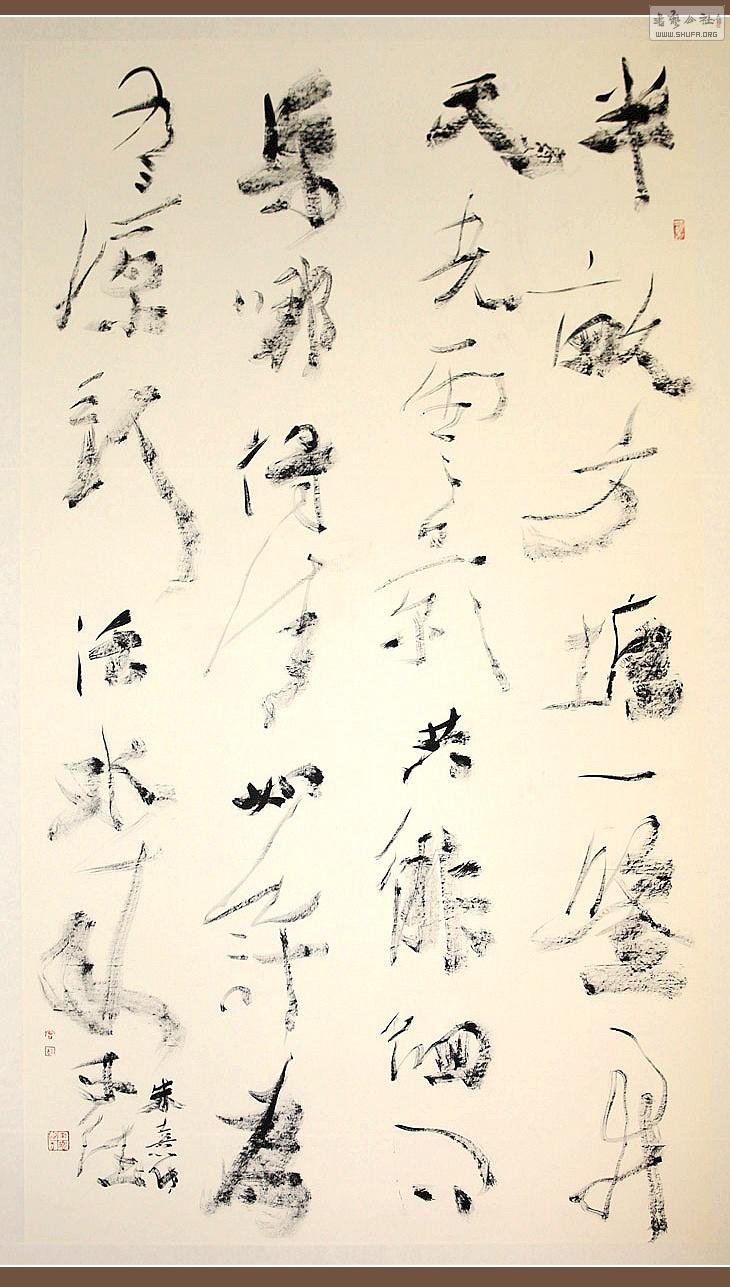 半畝方塘一鑒開
天光雲影共徘徊问
渠哪得清如許為
有源頭活水來
朱熹詩
書藝公社
WWW.SHUFA.ORG